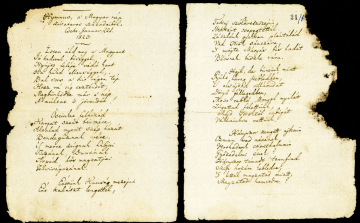 Hymnus, a' Magyar nép
zivataros századaiból.
Cseke, Januar. 22d
1823.
Isten áldd meg a' Magyart
Jó kedvvel, bőséggel,
Nyújts feléje védő kart,
Ha küzd ellenséggel;
Bal sors a' kit régen tép,
Hozz rá víg esztendőt,
Megbűnhődte már e' nép
A' multat 's jövendőt.
Őseinket felhozád
Kárpát szent bérczére,
Általad nyert szép hazát
Bendegúznak vére.
'S merre zúgnak habjai
Tiszának, Dunának,
Árpád hős magzatjai
Felvirágozának.
Értünk Kunság mezein
Ért kalászt lengettél,
Tokaj szőlővesszein
Nektárt csepegtettél.
Zászlónk gyakran plántálád
Vad török sánczára,
'S nyögte Mátyás bús hadát
Bécsnek büszke vára.
Hajh, de bűneink miatt
Gyúlt harag kebledben,
'S elsújtád villámidat
Dörgő fellegedben,
Most rabló Mongol nyilát
Zúgattad felettünk,
Majd töröktől rabigát
Vállainkra vettünk.
Hányszor zengett ajkain
Ozman vad népének
Vert hadunk csonthalmain
Győzedelmi ének!
Hányszor támadt tenfiad
Szép hazám kebledre,
'S lettél magzatod miatt
Magzatod hamvvedre!